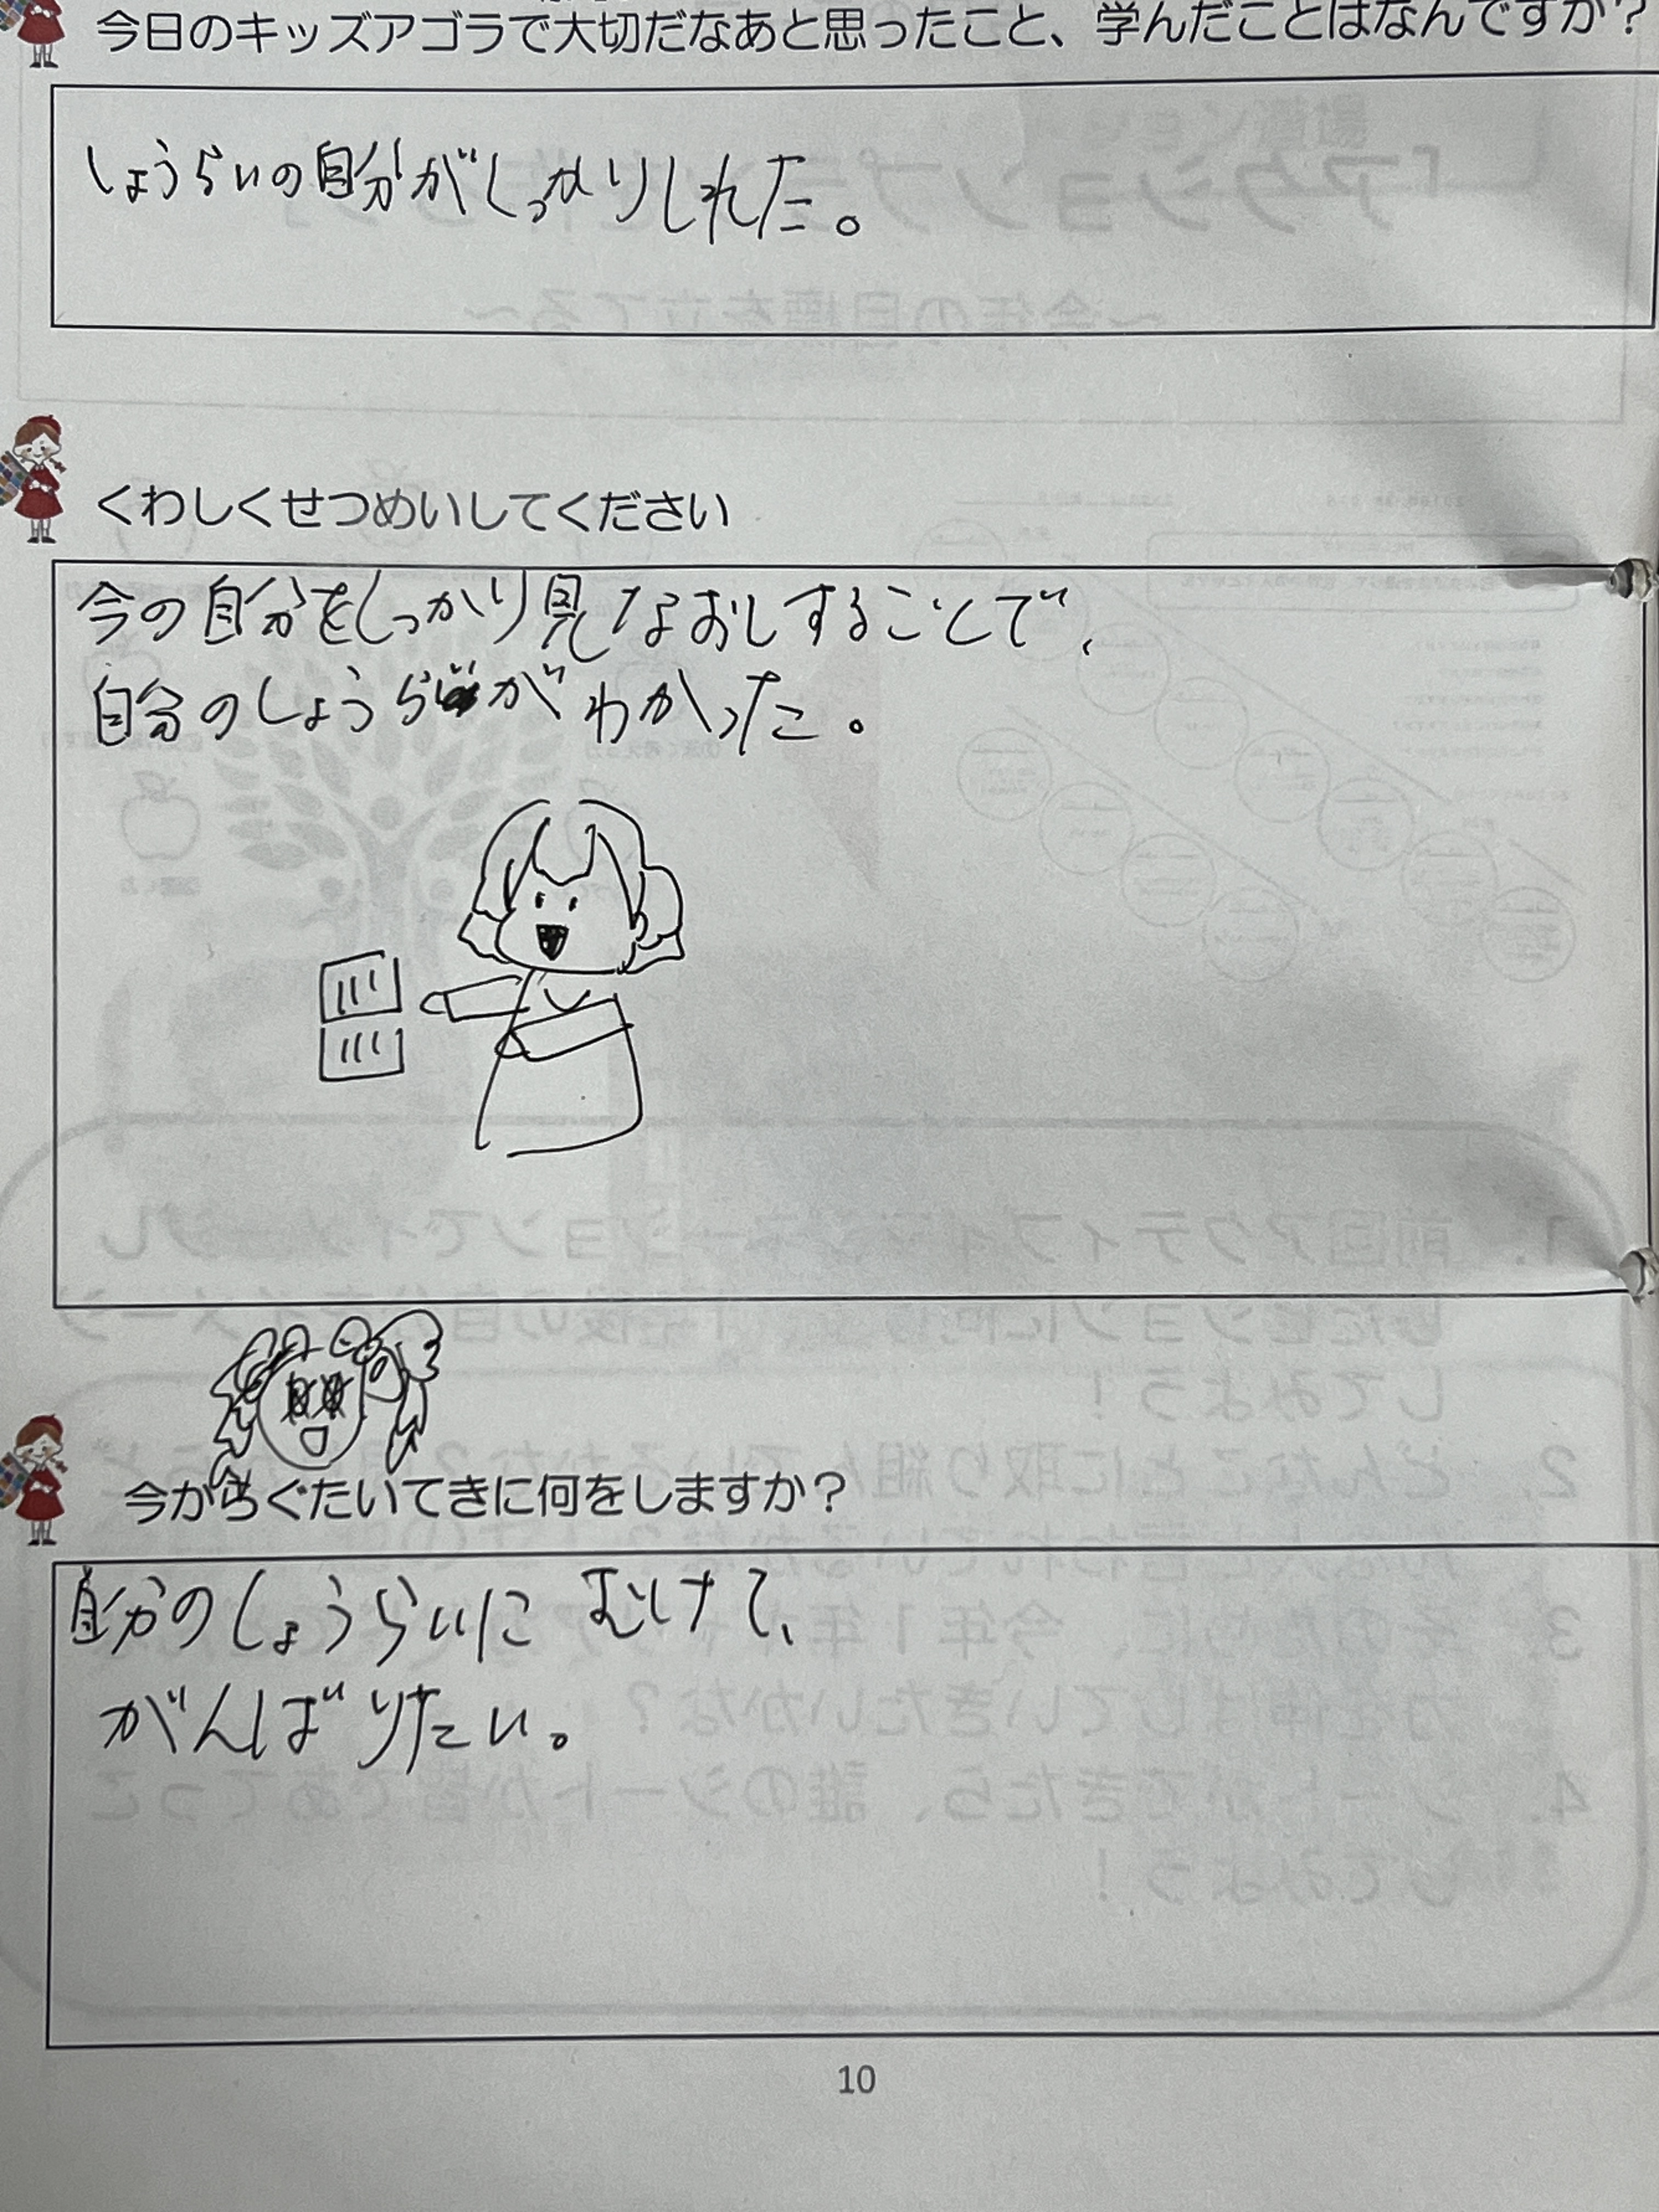 今日のキッズアゴラで大切だなあと思ったこと、学んだことはなんですか?
しょうらいの自分がしっかりしれた。
くわしくせつめいしてください
今の自分をしっかり見なおしすることで、
自分のしょうらいがわかった。
今からぐたいてきに何をしますか?
自分のしょうらいにむけて、
がんばりたい。
10